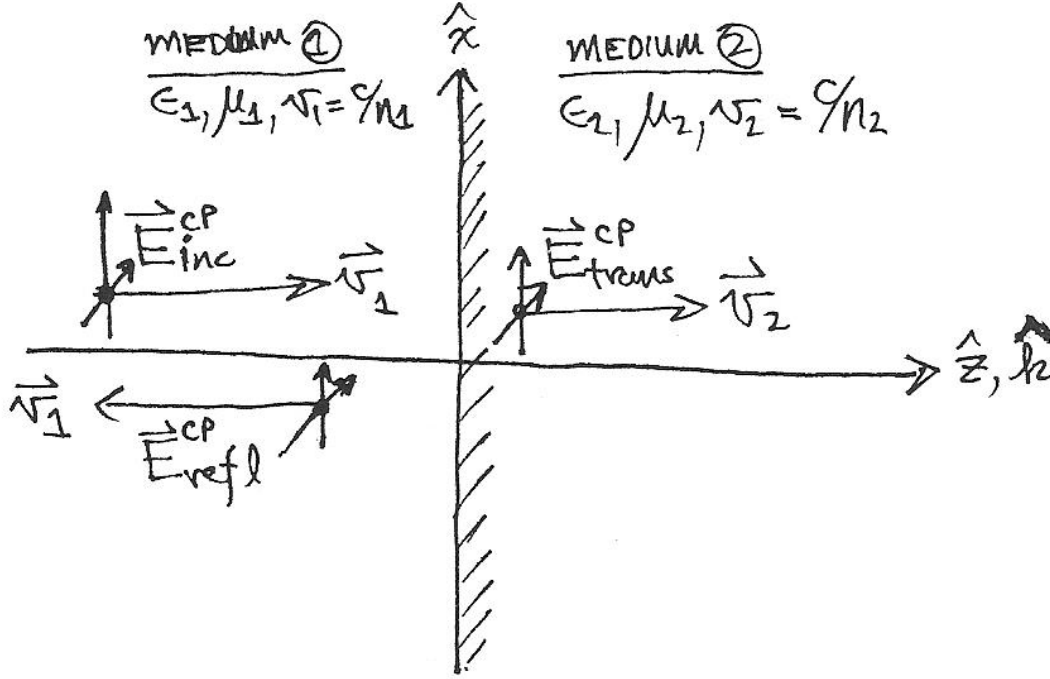 MEDIUM ①
ϵ₁, μ₁, v₁ = c/n₁
x̂
MEDIUM ②
ϵ₂, μ₂, v₂ = c/n₂
E⃗ᶜᴾinc
v⃗₁
E⃗ᶜᴾtrans
v⃗₂
ẑ, k̂
v⃗₁
E⃗ᶜᴾrefl